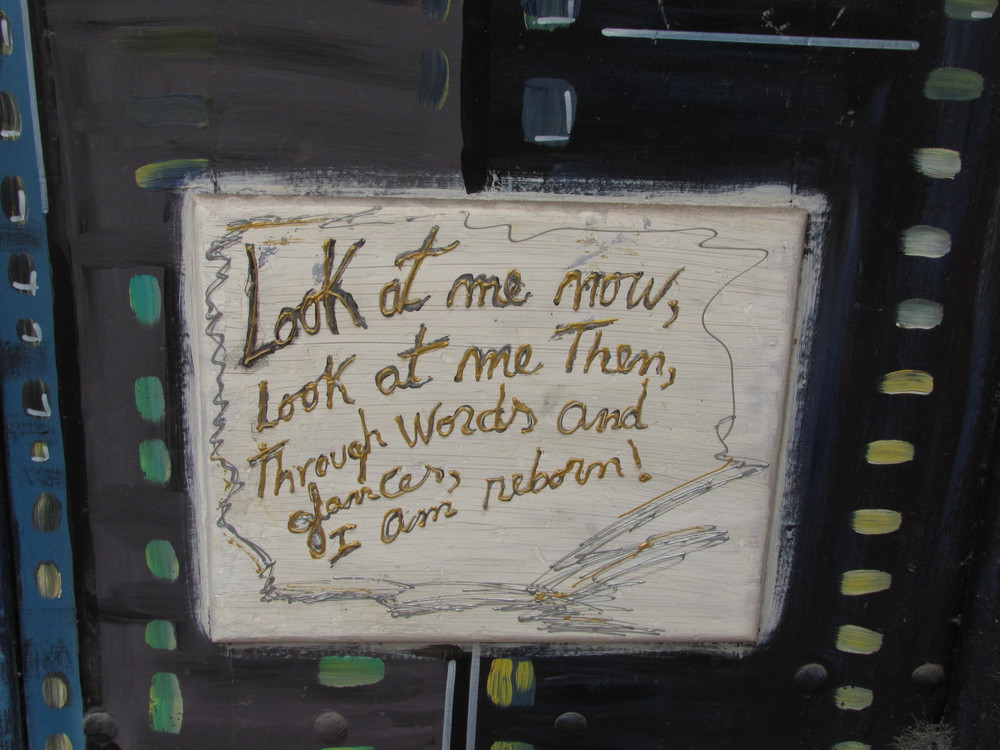 Look at me now,
Look at me Then,
Through Words and
glances,
I am reborn!